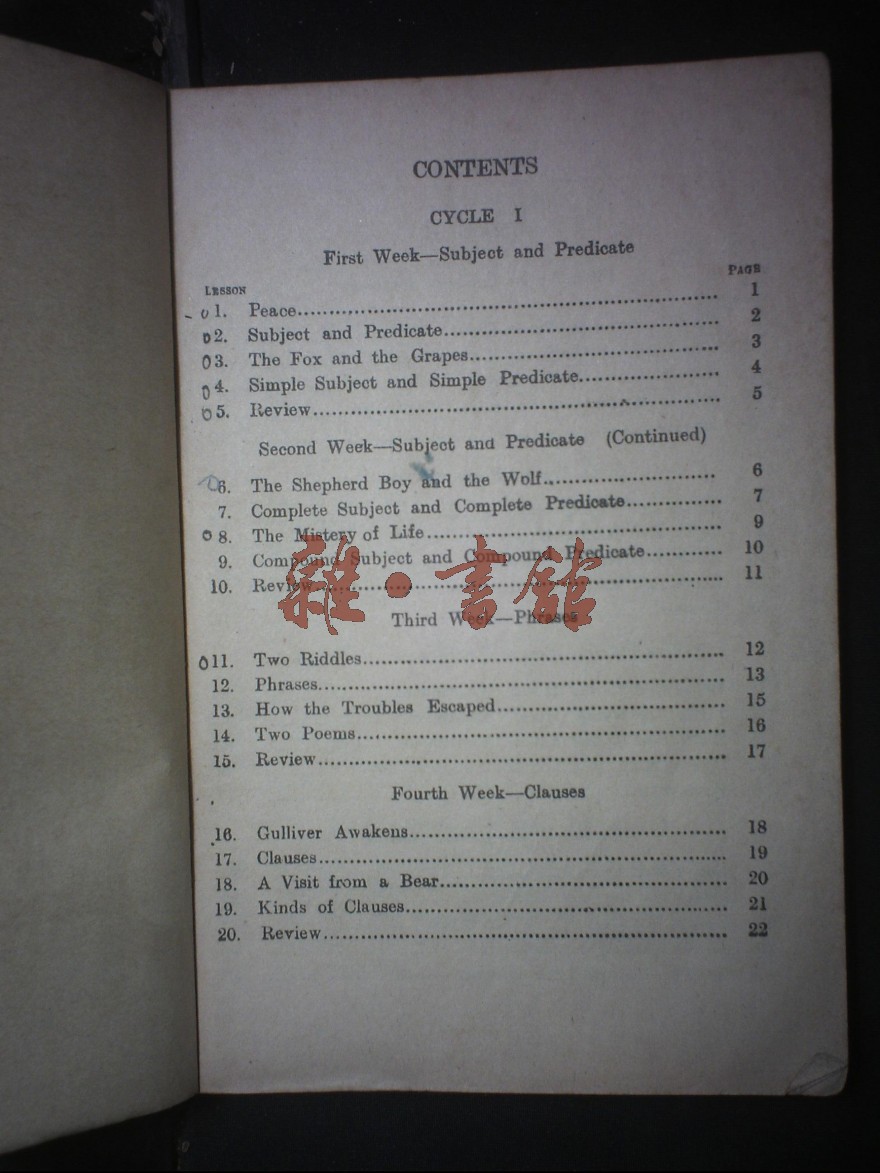 CONTENTS
CYCLE I
First Week—Subject and Predicate
LESSON PAGE
1. Peace 1
2. Subject and Predicate 2
3. The Fox and the Grapes 3
4. Simple Subject and Simple Predicate 4
5. Review 5
Second Week—Subject and Predicate (Continued)
6. The Shepherd Boy and the Wolf 6
7. Complete Subject and Complete Predicate 7
8. The Mistery of Life 9
9. Compound Subject and Compound Predicate 10
10. Review 11
雜·書館
Third Week—Phrases
11. Two Riddles 12
12. Phrases 13
13. How the Troubles Escaped 15
14. Two Poems 16
15. Review 17
Fourth Week—Clauses
16. Gulliver Awakens 18
17. Clauses 19
18. A Visit from a Bear 20
19. Kinds of Clauses 21
20. Review 22